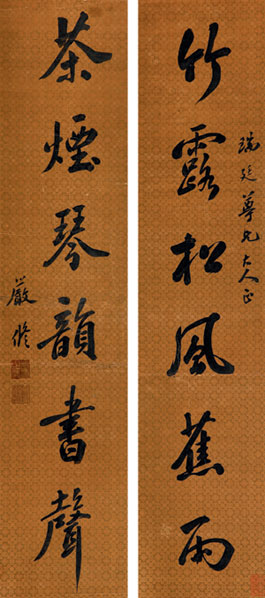 瑞廷尊兄大人正
竹露松風蕉雨
茶煙琴韻書聲
嚴修